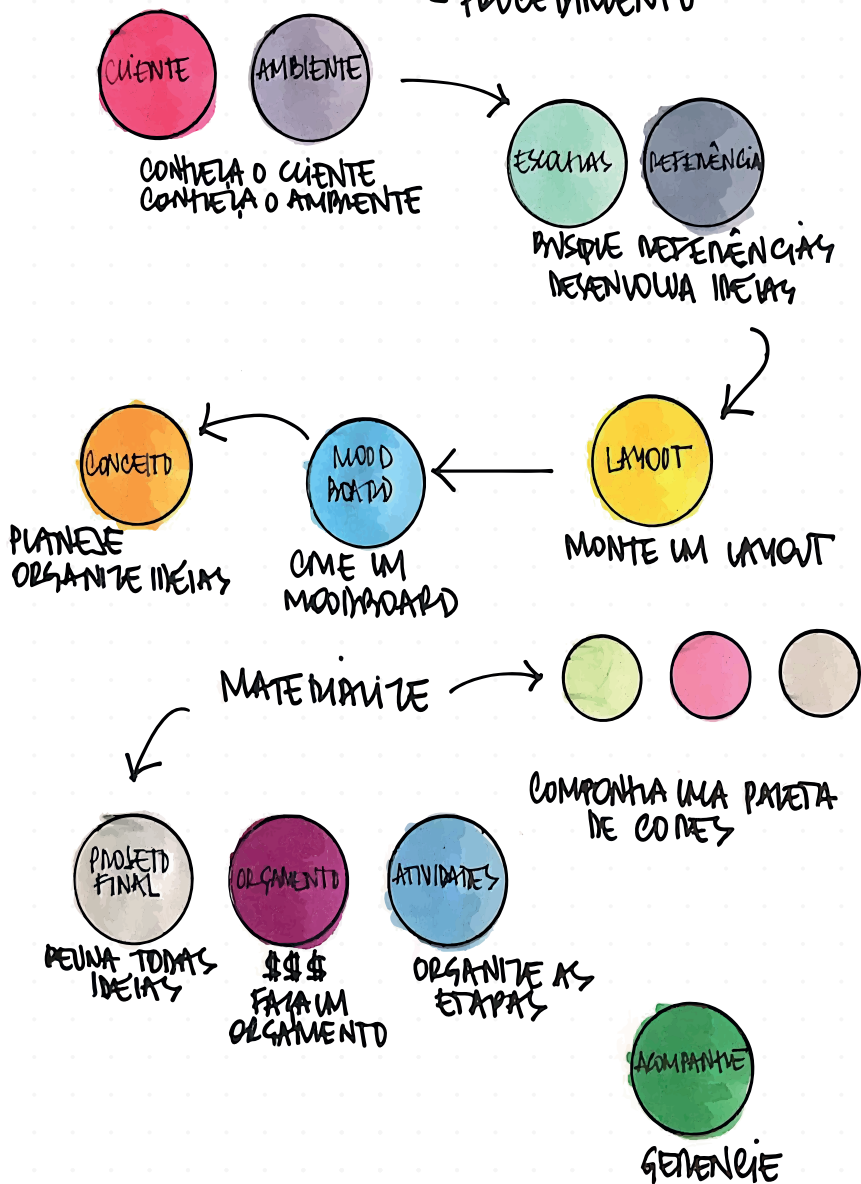 - PROCEDIMENTO
CLIENTE
AMBIENTE
CONHEÇA O CLIENTE
CONHEÇA O AMBIENTE
ESCOLHAS
REFERÊNCIA
BUSQUE REFERÊNCIAS
DESENVOLVA IDEIAS
CONCEITO
PLANEJE
ORGANIZE IDEIAS
MOOD
BOARD
CRIE UM
MOODBOARD
LAYOUT
MONTE UM LAYOUT
MATERIALIZE
COMPONHA UMA PALETA
DE CORES
PROJETO
FINAL
REUNA TODAS
IDEIAS
ORÇAMENTO
$$$
FAÇA UM
ORÇAMENTO
ATIVIDADES
ORGANIZE AS
ETAPAS
ACOMPANHE
GERENCIE